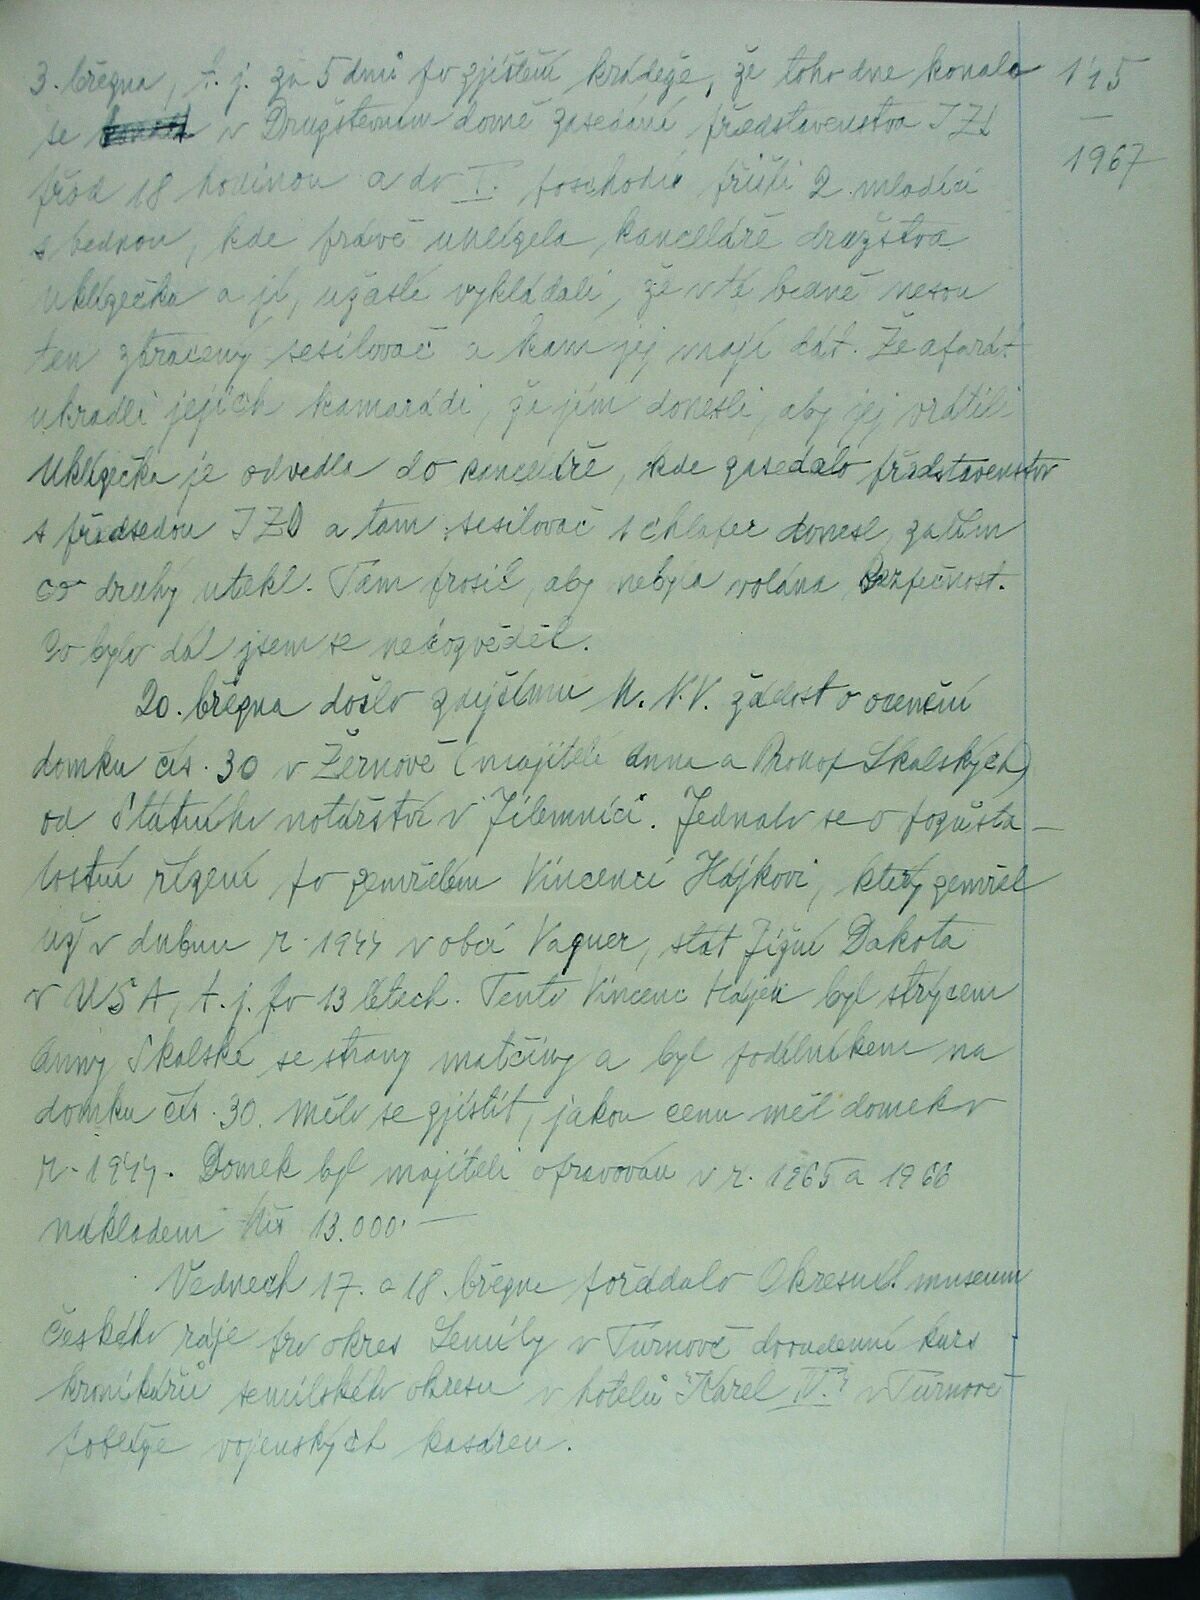 3. března, t. j. za 5 dnů po zjištění krádeže, že toho dne konala
115
se v Družstevním domě zasedání představenstva JZD
1967
před 18 hodinou a do I. poschodí přišli 2 mladíci
s bednou, kde právě uklízela kanceláře družstva
uklízečka a jí, užaslé vykládali, že v té bedně nesou
ten ztracený sesilovač a kam jej mají dát. Že aparát
ukradli jejich kamarádi, že jim donesli, aby jej vrátili
Uklízečka je odvedla do kanceláře, kde zasedalo představenstvo
s předsedou JZD a tam sesilovač 1 chlapec donesl, zatím
co druhý utekl. Tam prosil, aby nebyla volána Bezpečnost.
Co bylo dál jsem se nedozvěděl.
20. března došlo zdejšímu M.N.V. žádost o ocenění
domku čís. 30 v Žernově (majitelé Anna a Prokop Skalských)
od Státního notářství v Jilemnici. Jednalo se o pozůsta-
lostní řízení po zemřelém Vincenci Hájkovi, který zemřel
už v dubnu r. 1944 v obci Vagner, stát Jižní Dakota
v USA, t. j. po 13 létech. Tento Vincenc Hájek byl strýcem
Anny Skalské se strany matčiny a byl podílníkem na
domku čís. 30. Mělo se zjistit, jakou cenu měl domek v
r. 1944. Domek byl majiteli opravován v r. 1965 a 1966
nákladem Kčs 13.000.—
Ve dnech 17. a 18. března pořádalo Okresní museum
Českého ráje pro okres Semily v Turnově dvoudenní kurs
kronikářů semilského okresu v hotelu "Karel IV." v Turnově
poblíže vojenských kasáren.